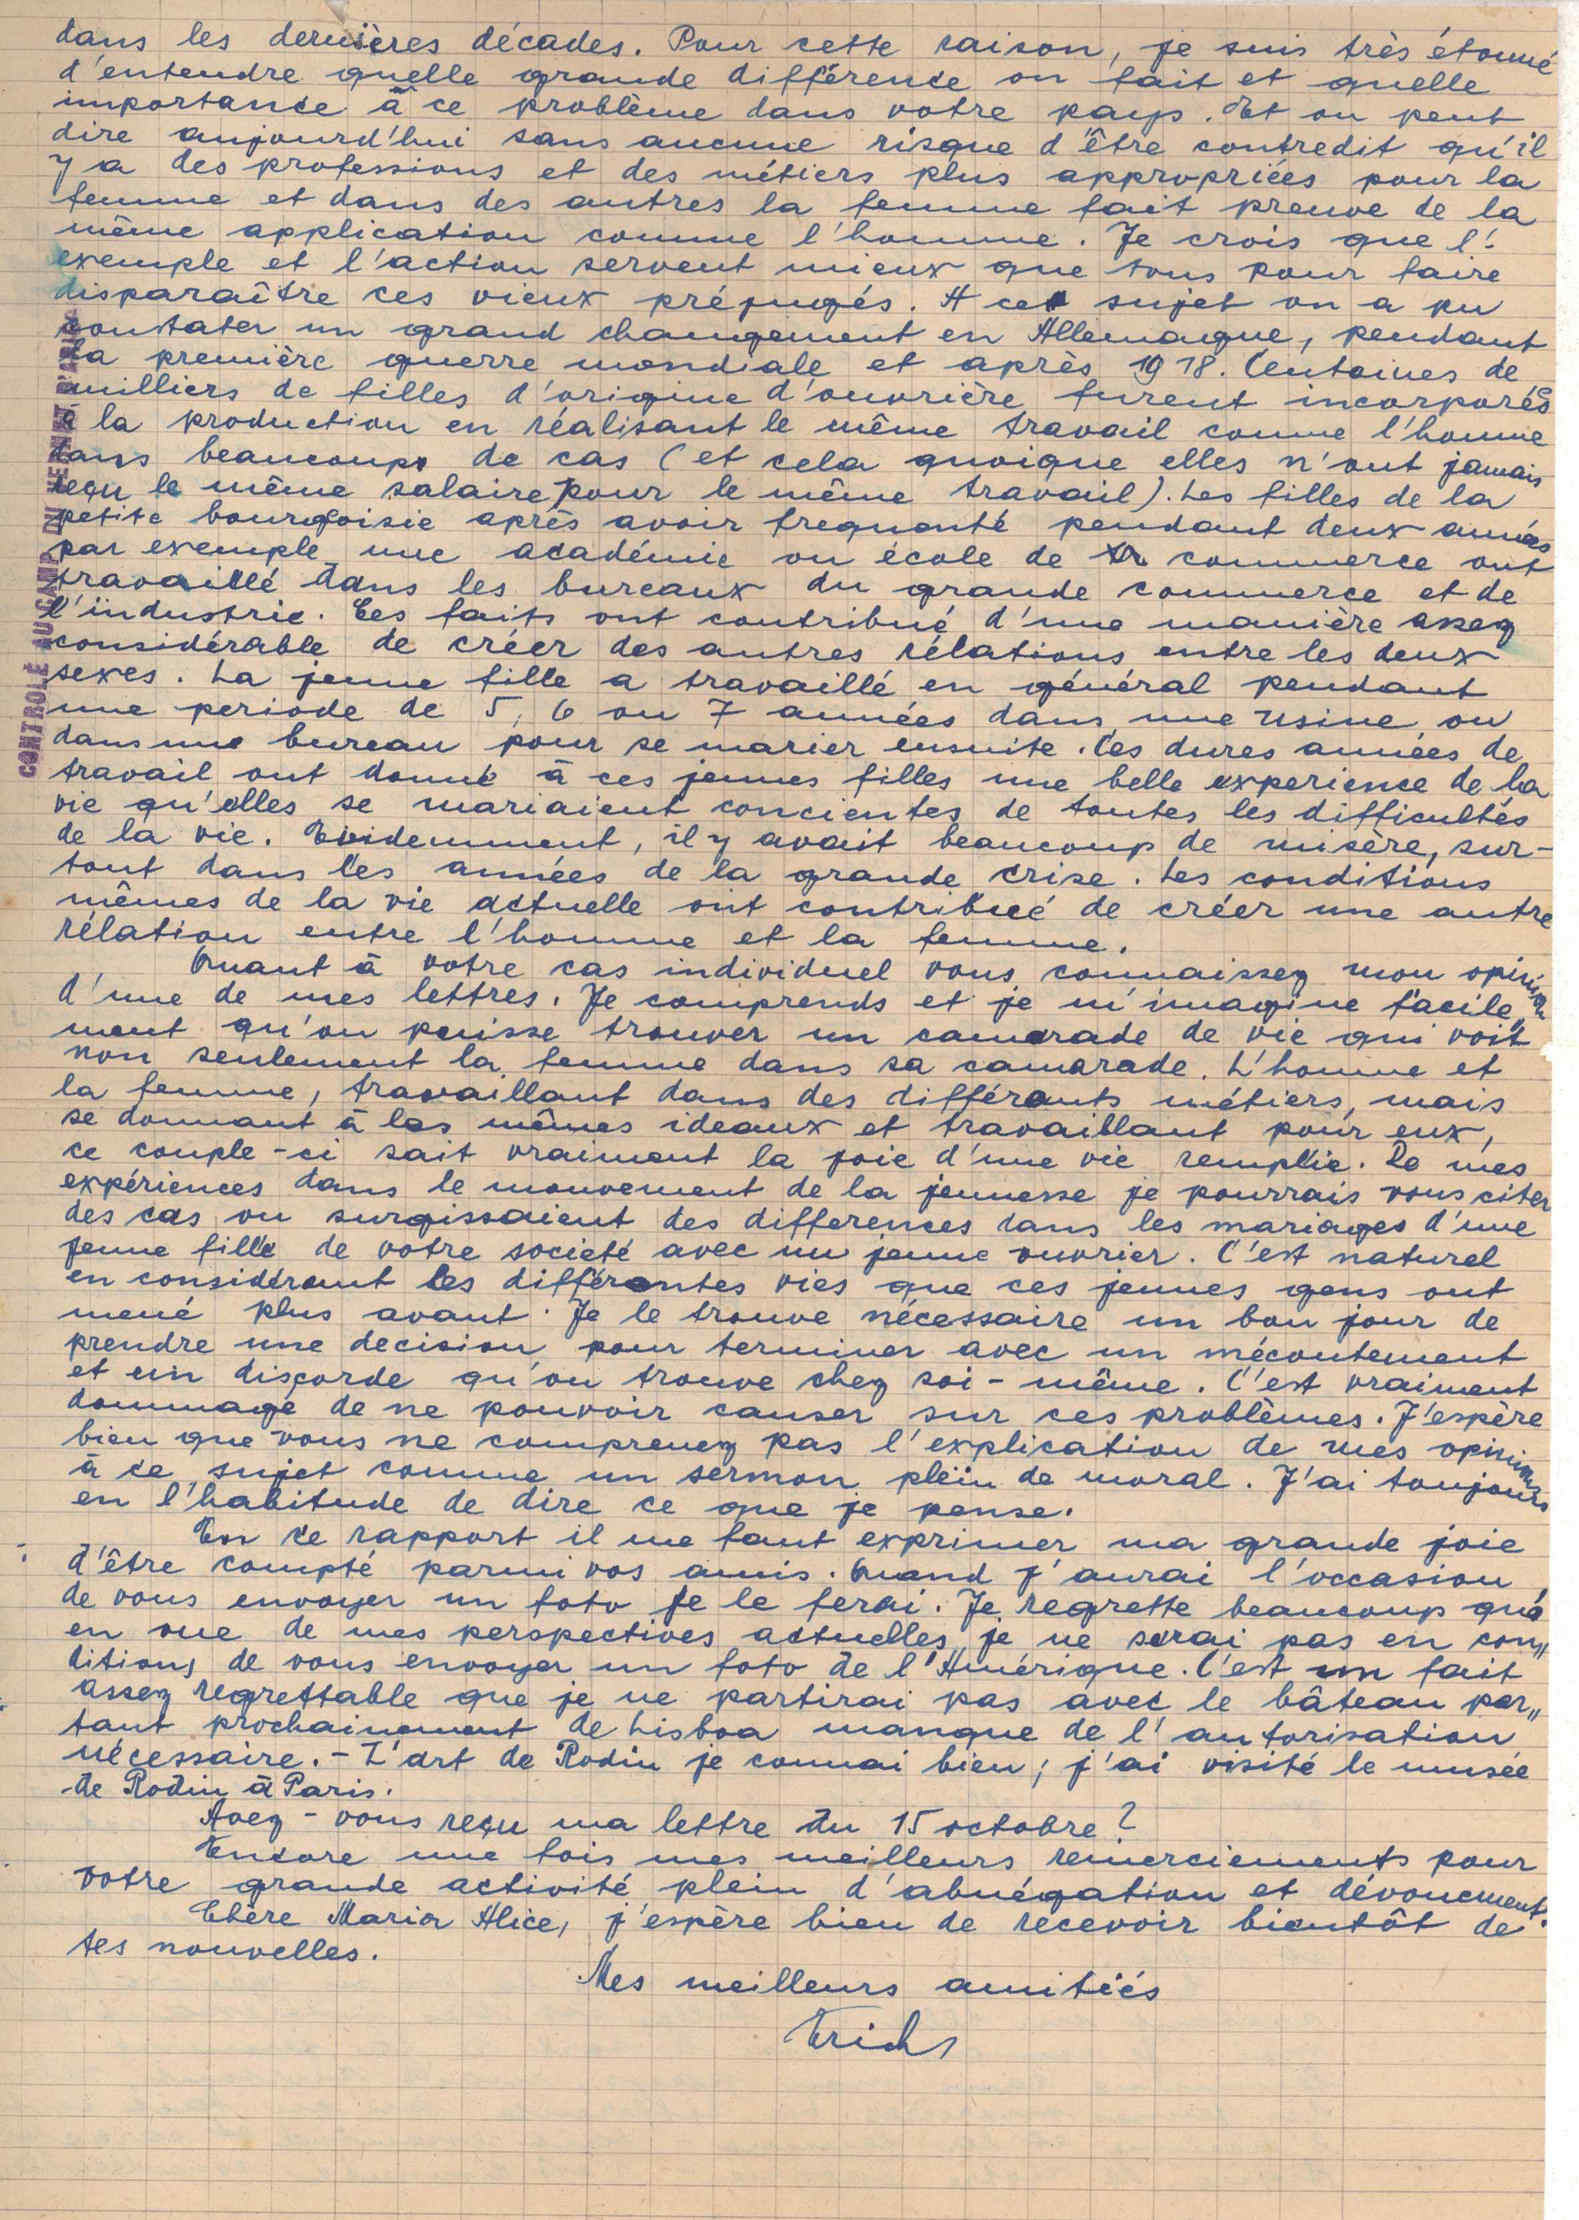 dans les dernières décades. Pour cette raison, je suis très étonné
d'entendre quelle grande différence on fait et quelle
importance à ce problème dans votre pays. Et on peut
dire aujourd'hui sans aucune risque d'être contredit qu'il
y a des professions et des métiers plus appropriées pour la
femme et dans des autres la femme fait preuve de la
même application comme l'homme. Je crois que l'-
exemple et l'action servent mieux que tous pour faire
disparaître ces vieux préjugés. A ce sujet on a pu
constater un grand changement en Allemagne, pendant
la première guerre mondiale et après 1918. Centaines de
milliers de filles d'origine d'ouvrière furent incorporés
à la production en réalisant le même travail comme l'homme
dans beaucoup de cas (et cela quoique elles n'ont jamais
reçu le même salaire pour le même travail). Les filles de la
petite bourgoisie après avoir frequenté pendant deux années
par exemple une académie ou école de commerce ont
travaillé dans les bureaux du grande commerce et de
l'industrie. Ces faits ont contribué d'une manière assez
considérable de créer des autres rélations entre les deux
sexes. La jeune fille a travaillé en général pendant
une periode de 5, 6 ou 7 années dans une usine ou
dans une bureau pour se marier ensuite. Ces dures années de
travail ont donné à ces jeunes filles une belle experience de la
vie qu'elles se mariaient concientes de toutes les difficultés
de la vie. Evidemment, il y avait beaucoup de misère, sur-
tout dans les années de la grande crise. Les conditions
mêmes de la vie actuelle ont contribué de créer une autre
rélation entre l'homme et la femme.
Quant à votre cas individuel vous connaissez mon opinion
d'une de mes lettres. Je comprends et je m'imagine facile„
ment qu'on puisse trouver un camarade de vie qui voit
non seulement la femme dans sa camarade. L'homme et
la femme, travaillant dans des différents métiers, mais
se donnant à les mêmes ideaux et travaillant pour eux,
ce couple-ci sait vraiment la joie d'une vie remplie. De mes
expériences dans le mouvement de la jeunesse je pourrais vous citer
des cas ou surgissaient des differences dans les mariages d'une
jeune fille de votre societé avec un jeune ouvrier. C'est naturel
en considérant les différentes vies que ces jeunes gens ont
mené plus avant. Je le trouve nécessaire un bon jour de
prendre une decision pour terminer avec un mécontement
et un discorde qu'on trouve chez soi-même. C'est vraiment
dommage de ne pouvoir causer sur ces problèmes. J'espère
bien que vous ne comprenez pas l'explication de mes opinions
à ce sujet comme un sermon plein de moral. J'ai toujours
en l'habitude de dire ce que je pense.
En ce rapport il me faut exprimer ma grande joie
d'être compté parmi vos amis. Quand j'aurai l'occasion
de vous envoyer un foto je le ferai. Je regrette beaucoup qu'
en vue de mes perspectives actuelles je ne serai pas en con„
ditions de vous envoyer un foto de l'Amérique. C'est un fait
assez regrettable que je ne partirai pas avec le bâteau par„
tant prochainement de Lisboa manque de l'autorisation
nécessaire. - L'art de Rodin je connai bien; j'ai visité le musée
de Rodin à Paris.
Avez-vous reçu ma lettre du 15 octobre?
Encore une fois mes meilleurs remerciements pour
votre grande activité plein d'abnégation et dévouement.
Chère Maria Alice, j'espère bien de recevoir bientôt de
tes nouvelles.
Mes meilleurs amitiés
Erich
CONTROLÉ AU CAMP DU VERNET